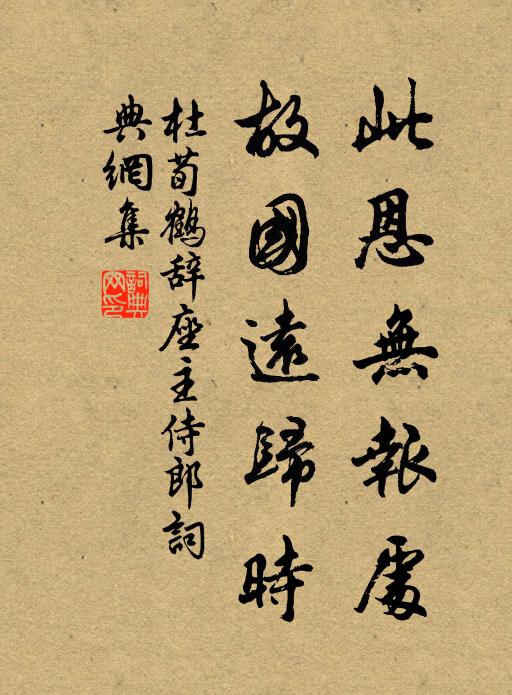 此恩無報處
故國遠歸時
杜荀鶴辞座主侍郎詞
典網集
詞典網印